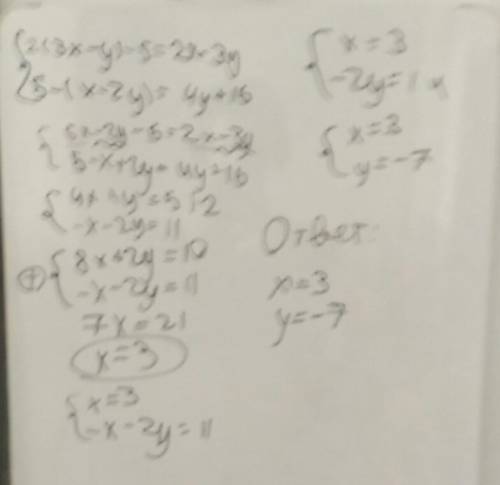 2(3x-y)-5=2x-3y
5-(x-2y)=4y+16
6x-2y-5=2x-3y
5-x+2y=4y+16
4x+y=5 |·2
-x-2y=11
8x+2y=10
-x-2y=11
7x=21
x=3
x=3
-x-2y=11
x=3
-2y=14
x=3
y=-7
Ответ:
x=3
y=-7